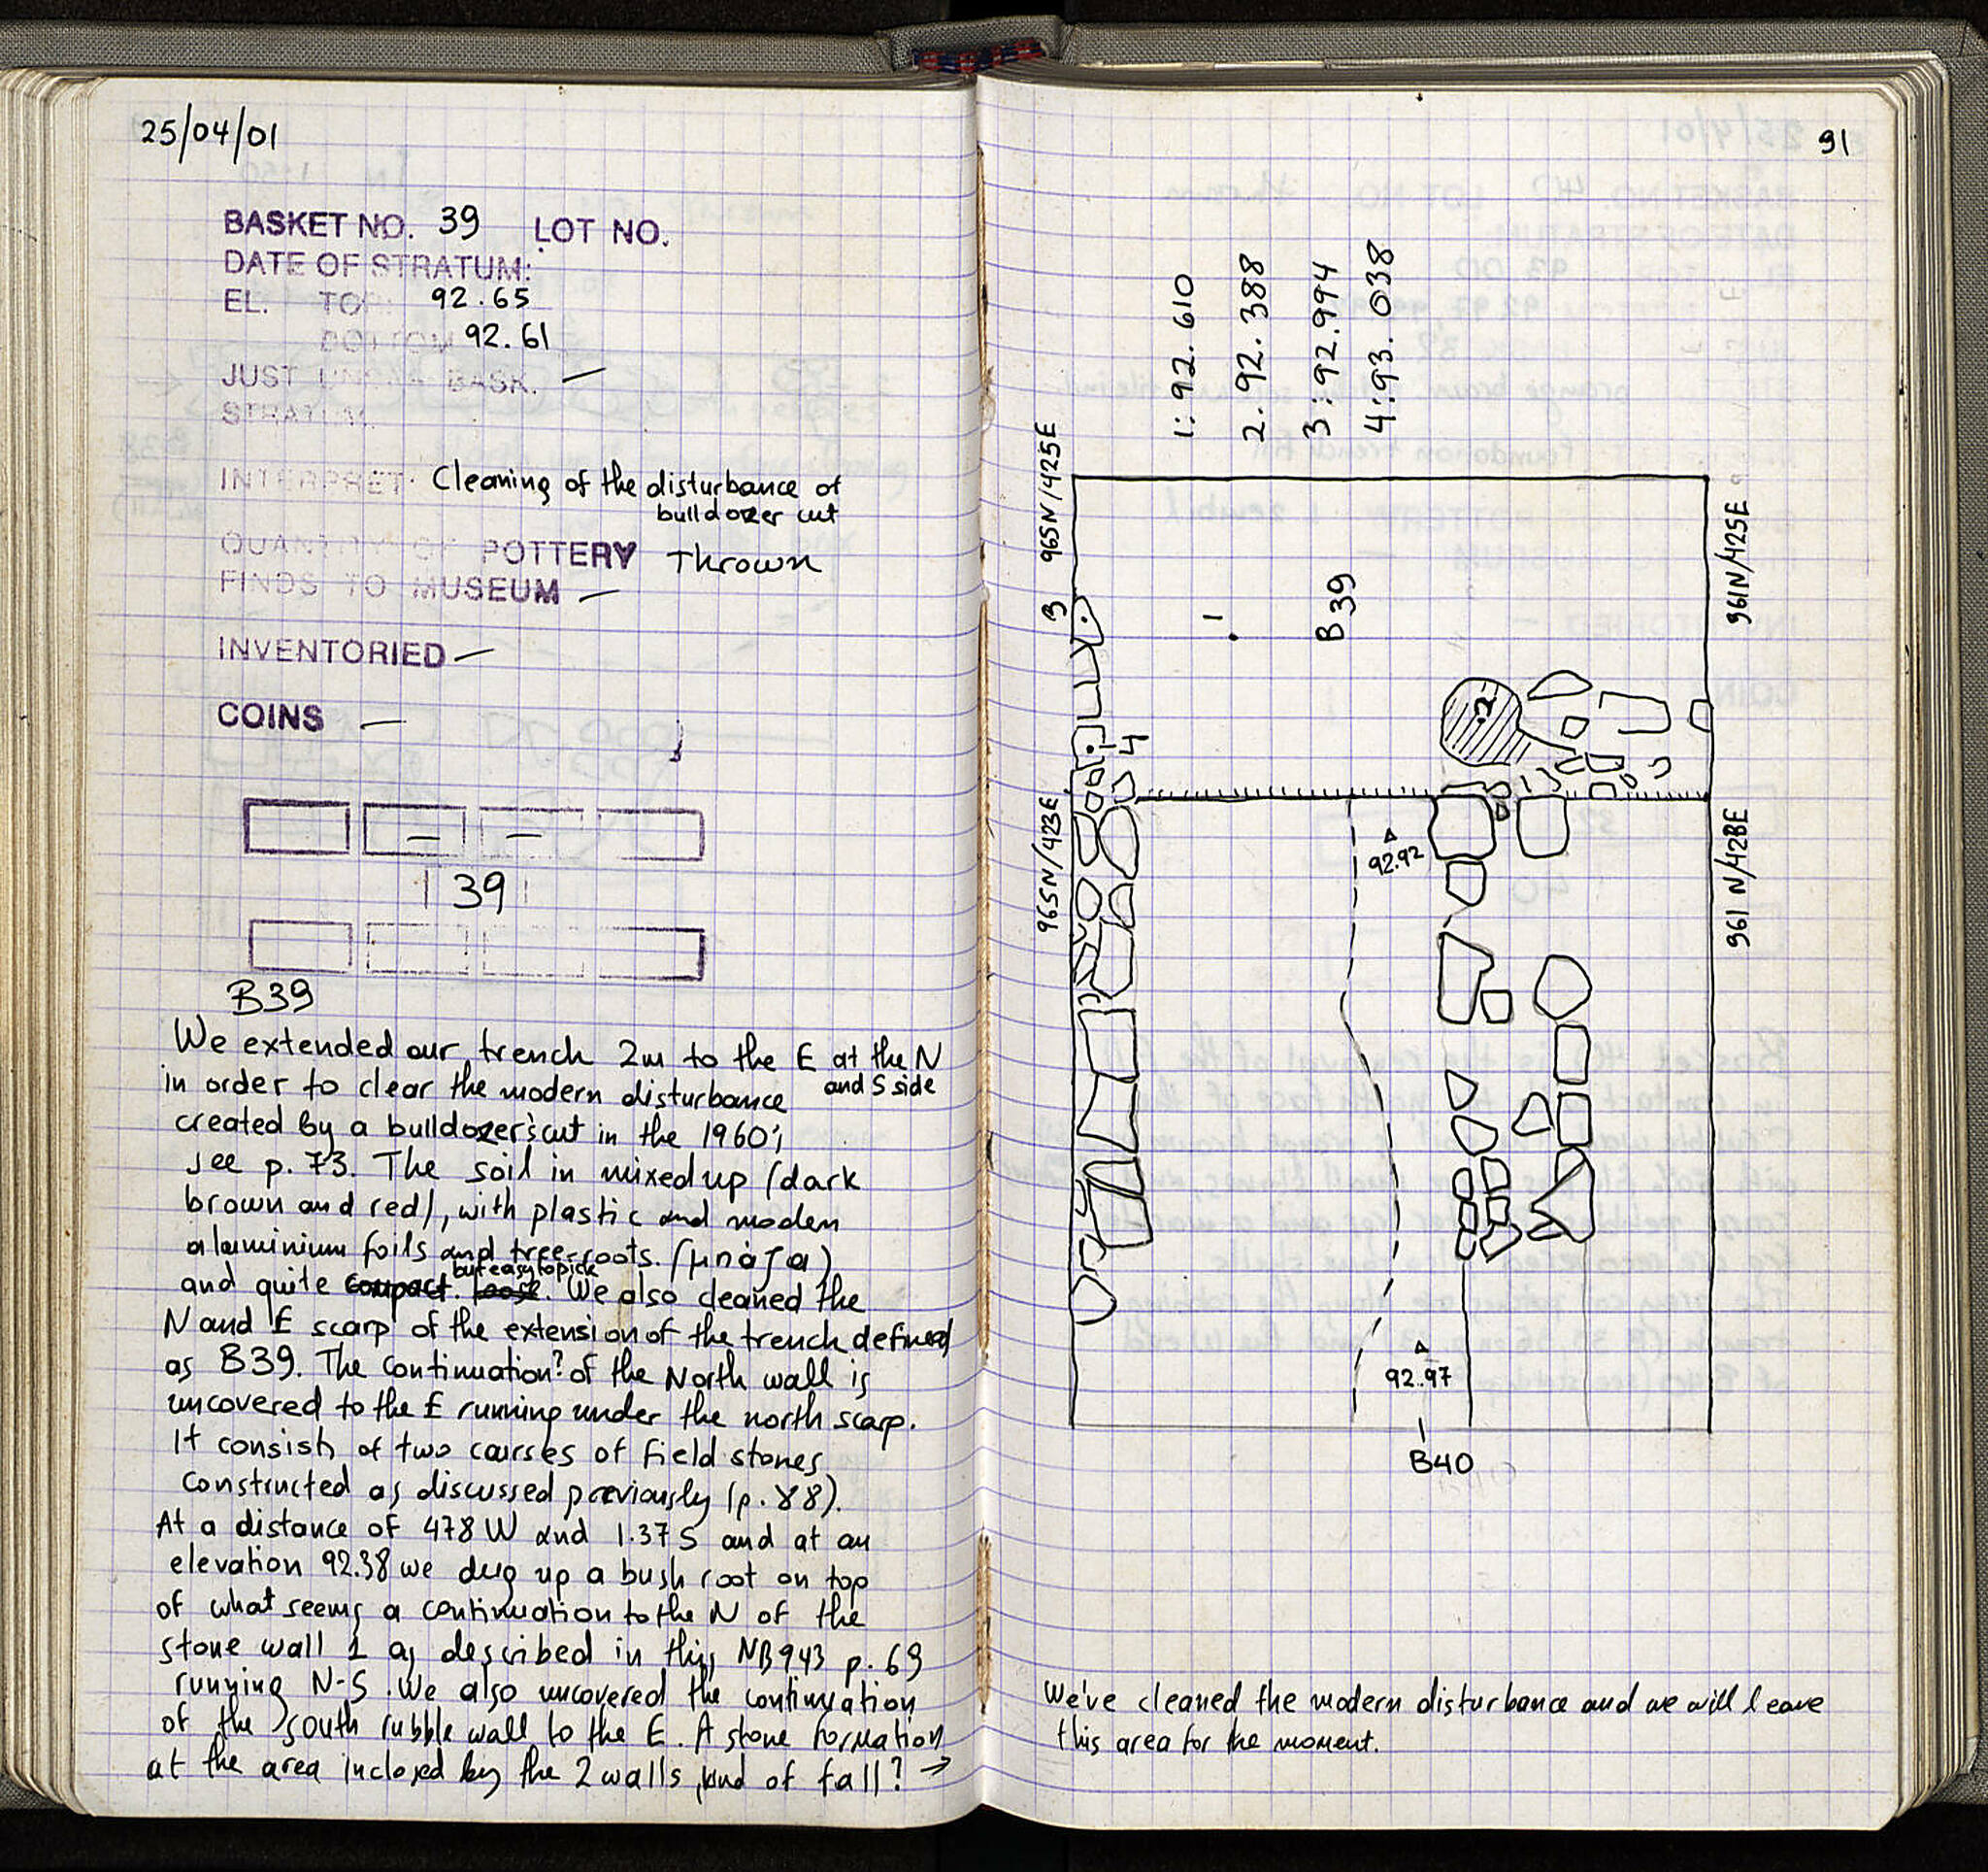 25/04/01
BASKET NO. 39 LOT NO.
DATE OF STRATUM:
EL. TOP: 92.65
BOTTOM 92.61
JUST UNDER BASK. —
STRATUM
INTERPRET: Cleaning of the disturbance of
bulldozer cut
QUANTITY OF POTTERY Thrown
FINDS TO MUSEUM —
INVENTORIED —
COINS —
39
B39
We extended our trench 2m to the E at the N
and S side
in order to clear the modern disturbance
created by a bulldozer's cut in the 1960;
see p. 73. The soil in mixed up (dark
brown and red), with plastic and modern
aluminium foils and tree-roots. (μπάζα)
but easy to pick
and quite compact. loose. We also cleaned the
N and E scarp of the extension of the trench defined
as B39. The continuation? of the North wall is
uncovered to the E running under the north scarp.
It consists of two courses of field stones
constructed as discussed previously (p. 88).
At a distance of 478 W and 1.37 S and at an
elevation 92.38 we dug up a bush root on top
of what seems a continuation to the N of the
stone wall 1 as described in this NB943 p. 69
running N-S. We also uncovered the continuation
of the south rubble wall to the E. A stone formation
at the area inclosed by the 2 walls, kind of fall? →
91
1: 92.610
2. 92.388
3: 92.994
4: 93.038
965N/425E
961N/425E
3
1
B39
2
4
965N/423E
961N/423E
92.92
92.97
B40
We've cleaned the modern disturbance and we will leave
this area for the moment.